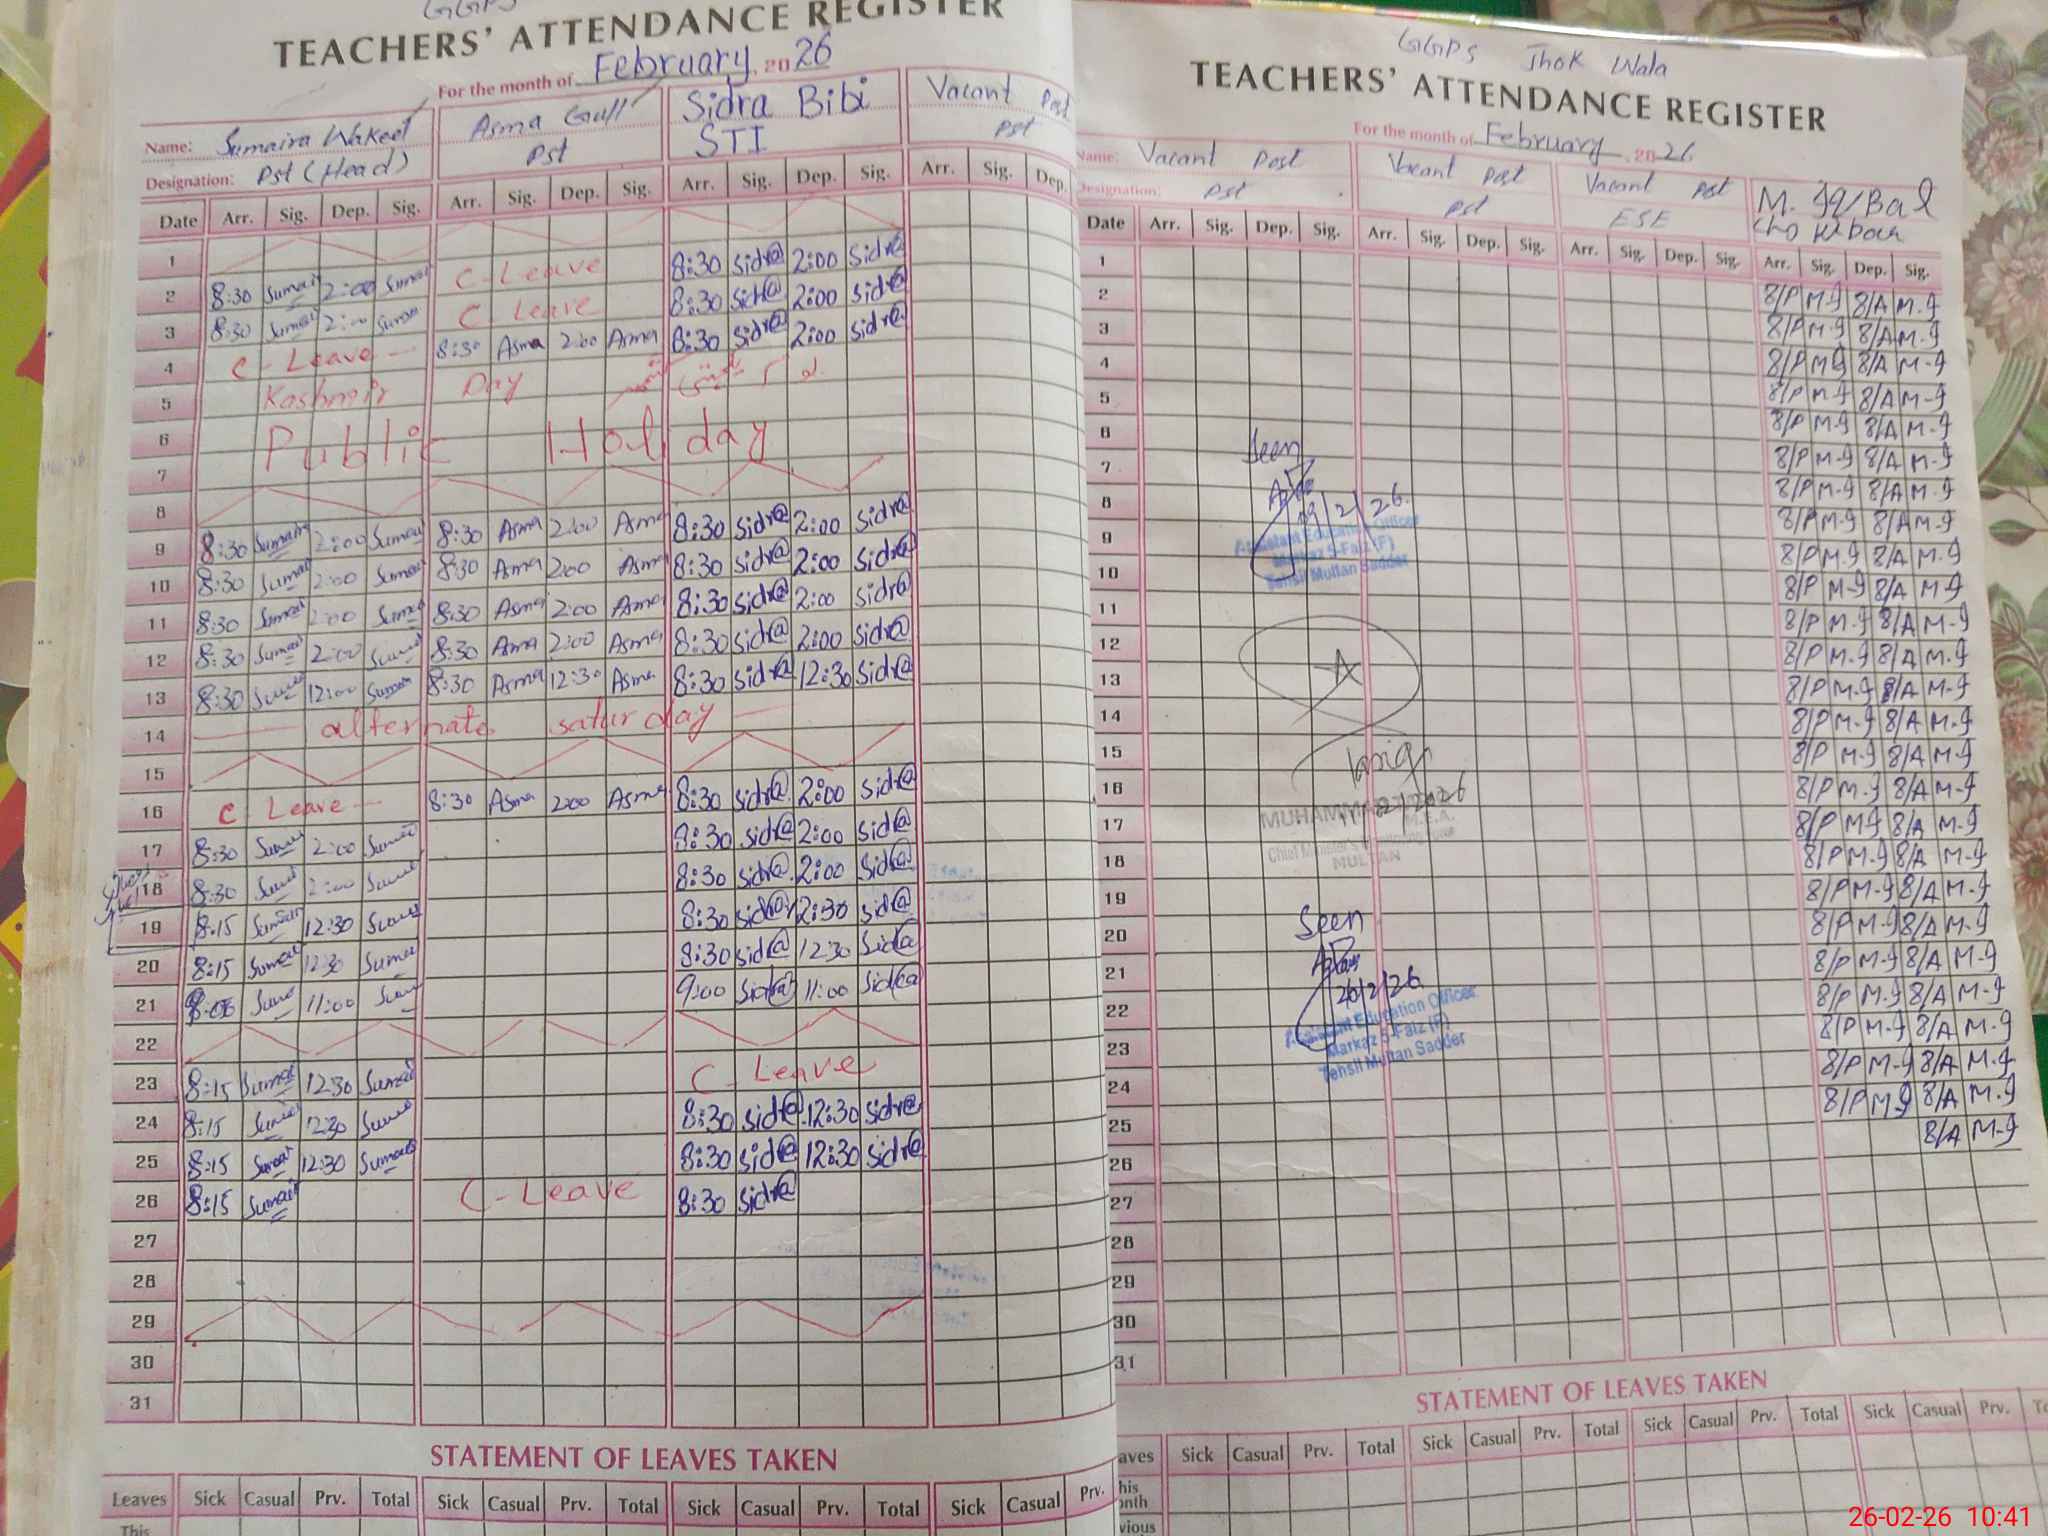 GGPS
TEACHERS' ATTENDANCE REGISTER
For the month of February, 2026
Name: Sumaira Wakeel Asma Gull Sidra Bibi Vacant Post
Designation: Pst (Head) Pst STI Pst
Date Arr. Sig. Dep. Sig. Arr. Sig. Dep. Sig. Arr. Sig. Dep. Sig. Arr. Sig. Dep.
1
2 8:30 Sumai 2:00 Sumai C-Leave 8:30 Sidra 2:00 Sidra
3 8:30 Sumai 2:00 Sumai C Leave 8:30 Sidra 2:00 Sidra
4 C-Leave 8:30 Asma 2:00 Asma 8:30 Sidra 2:00 Sidra
5 Kashmir Day
6 Public Holiday
7
8
9 8:30 Sumai 2:00 Sumai 8:30 Asma 2:00 Asma 8:30 Sidra 2:00 Sidra
10 8:30 Sumai 2:00 Sumai 8:30 Asma 2:00 Asma 8:30 Sidra 2:00 Sidra
11 8:30 Sumai 2:00 Sumai 8:30 Asma 2:00 Asma 8:30 Sidra 2:00 Sidra
12 8:30 Sumai 2:00 Sumai 8:30 Asma 2:00 Asma 8:30 Sidra 2:00 Sidra
13 8:30 Sumai 12:00 Sumai 8:30 Asma 12:30 Asma 8:30 Sidra 12:30 Sidra
14 alternate saturday
15
16 C Leave 8:30 Asma 2:00 Asma 8:30 Sidra 2:00 Sidra
17 8:30 2:00 8:30 Sidra 2:00 Sidra
18 8:30 2:00 8:30 Sidra 2:00 Sidra
19 8:15 Sumai 12:30 Sumai 8:30 Sidra 12:30 Sidra
20 8:15 Sumai 12:30 Sumai 8:30 Sidra 12:30 Sidra
21 11:00 9:00 Sidra 11:00 Sidra
22
23 8:15 Sumai 12:30 Sumai C-Leave
24 8:15 Sumai 12:30 Sumai 8:30 Sidra 12:30 Sidra
25 8:15 Sumai 12:30 Sumai 8:30 Sidra 12:30 Sidra
26 8:15 Sumai C-Leave 8:30 Sidra
27
28
29
30
31
STATEMENT OF LEAVES TAKEN
Leaves Sick Casual Prv. Total Sick Casual Prv. Total Sick Casual Prv. Total Sick Casual Prv.
This
GGPS Jhok Wala
TEACHERS' ATTENDANCE REGISTER
For the month of February, 2026
Name: Vacant Post Vacant Post Vacant Post M. Iqbal
Designation: Pst Pst ESE
Date Arr. Sig. Dep. Sig. Arr. Sig. Dep. Sig. Arr. Sig. Dep. Sig. Arr. Sig. Dep. Sig.
1
2 8/P M-I 8/A M-I
3 8/P M-I 8/A M-I
4 8/P M-I 8/A M-I
5 8/P M-I 8/A M-I
6 8/P M-I 8/A M-I
7 8/P M-I 8/A M-I
8 8/P M-I 8/A M-I
9 8/P M-I 8/A M-I
10 8/P M-I 8/A M-I
11 8/P M-I 8/A M-I
12 8/P M-I 8/A M-I
13 8/P M-I 8/A M-I
14 8/P M-I 8/A M-I
15 8/P M-I 8/A M-I
16 8/P M-I 8/A M-I
17 8/P M-I 8/A M-I
18 8/P M-I 8/A M-I
19 8/P M-I 8/A M-I
20 8/P M-I 8/A M-I
21 8/P M-I 8/A M-I
22 8/P M-I 8/A M-I
23 8/P M-I 8/A M-I
24 8/P M-I 8/A M-I
25 8/P M-I 8/A M-I
26 8/A M-I
27
28
29
30
31
Seen
/2/26.
Assistant Education Officer
Markaz S-Faiz (F)
Tehsil Multan Sadder
A
MUHAMMAD
M.E.A.
Chief Minister's Monitoring Force
MULTAN
Seen
26/2/26
Assistant Education Officer
Markaz S-Faiz (F)
Tehsil Multan Sadder
STATEMENT OF LEAVES TAKEN
Sick Casual Prv. Total Sick Casual Prv. Total Sick Casual Prv. Total Sick Casual Prv.
26-02-26 10:41